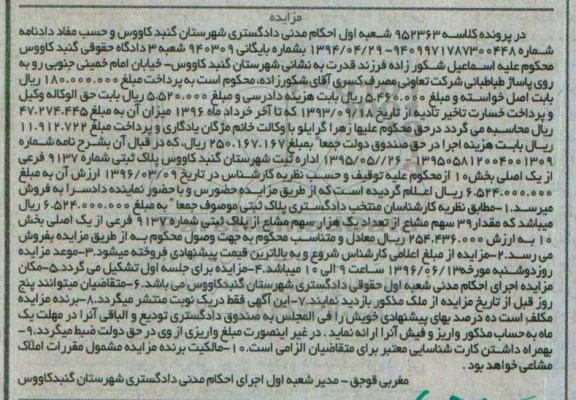 مزایده
در پرونده کلاسه ۹۵۲۳۶۳ شعبه اول احکام مدنی دادگستری شهرستان گنبد کاووس و حسب مفاد دادنامه
شماره ۹۴۰۹۹۷۱۷۸۷۳۰۰۴۴۸-۱۳۹۴/۰۴/۲۹ بشماره بایگانی ۹۴۰۳۰۹ شعبه ۳ دادگاه حقوقی گنبد کاووس
محکوم علیه اسماعیل شکور زاده فرزند قدرت به نشانی شهرستان گنبد کاووس- خیابان امام خمینی جنوبی رو به
روی پاساژ طباطبائی شرکت تعاونی مصرف کسری آقای شکورزاده، محکوم است به پرداخت مبلغ ۱۸۰.۰۰۰.۰۰۰ ریال
بابت اصل خواسته و مبلغ ۵.۴۶۰.۰۰۰ ریال بابت هزینه دادرسی و مبلغ ۵.۵۲۰.۰۰۰ ریال بابت حق الوکاله وکیل
و پرداخت خسارت تاخیر تادیه از تاریخ ۱۳۹۳/۰۹/۱۸ که تا آخر خرداد ماه ۱۳۹۶ میزان آن به مبلغ ۴۷.۲۷۴.۴۴۵
ریال محاسبه می گردد درحق محکوم علیها زهرا گرایلو با وکالت خانم مژگان یادگاری و پرداخت مبلغ ۱۱.۹۱۲.۷۲۲
ریال بابت هزینه اجرا در حق صندوق دولت جمعا" بمبلغ ۲۵۰.۱۶۷.۱۶۷ ریال، که در قبال آن بشرح نامه شماره
۱۳۹۵۰۵۸۱۲۰۰۴۰۰۱۳۰۹ – ۱۳۹۵/۰۵/۲۶ اداره ثبت شهرستان گنبد کاووس پلاک ثبتی شماره ۹۱۳۷ فرعی
از یک اصلی بخش ۱۰ از محکوم علیه توقیف و حسب نظریه کارشناس در تاریخ ۱۳۹۶/۰۳/۰۹ ارزش آن به مبلغ
۶.۵۲۴.۰۰۰.۰۰۰ ریال اعلام گردیده است که از طریق مزایده حضورس و با حضور نماینده دادسرا به فروش
میرسد.۱-مطابق نظریه کارشناسان منتخب دادگستری پلاک ثبتی موصوف جمعا" به مبلغ ۶.۵۲۴.۰۰۰.۰۰۰ ریال
میباشد که مقدار ۳۹ سهم مشاع از تعداد یک هزار سهم مشاع از پلاک ثبتی شماره ۹۱۳۷ فرعی از یک اصلی بخش
۱۰ به ارزش ۲۵۴.۴۳۶.۰۰۰ ریال معادل و متناسب محکوم به جهت وصول محکوم به از طریق مزایده بفروش
می رسد.۲-مزایده از مبلغ اعلامی کارشناس شروع و به بالاترین قیمت پیشنهادی فروخته میشود.۳-موعد مزایده
روزدوشنبه مورخه ۱۳۹۶/۰۶/۱۳ ساعت ۹ الی ۱۰ میباشد.۴-مزایده برای جلسه اول تشکیل می گردد.۵-مکان
مزایده اجرای احکام مدنی شعبه اول حقوقی دادگستری شهرستان گنبدکاووس می باشد.۶-متقاضیان میتوانند پنج
روز قبل از تاریخ مزایده از ملک مذکور بازدید نمایند.۷-این آگهی فقط دریک نوبت منتشر میگردد.۸-برنده مزایده
مکلف است ده درصد بهای پیشنهادی خویش را فی المجلس به صندوق دادگستری تودیع و الباقی آنرا در مهلت یک
ماه به حساب مذکور واریز و فیش آنرا ارائه نماید . در غیر اینصورت مبلغ واریزی از وی در حق دولت ضبط میگردد.۹-
بهمراه داشتن کارت شناسایی معتبر برای متقاضیان الزامی است.۱۰-مالکیت برنده مزایده مشمول مقررات املاک
مشاعی خواهد بود .
مغربی قوجق - مدیر شعبه اول اجرای احکام مدنی دادگستری شهرستان گنبدکاووس